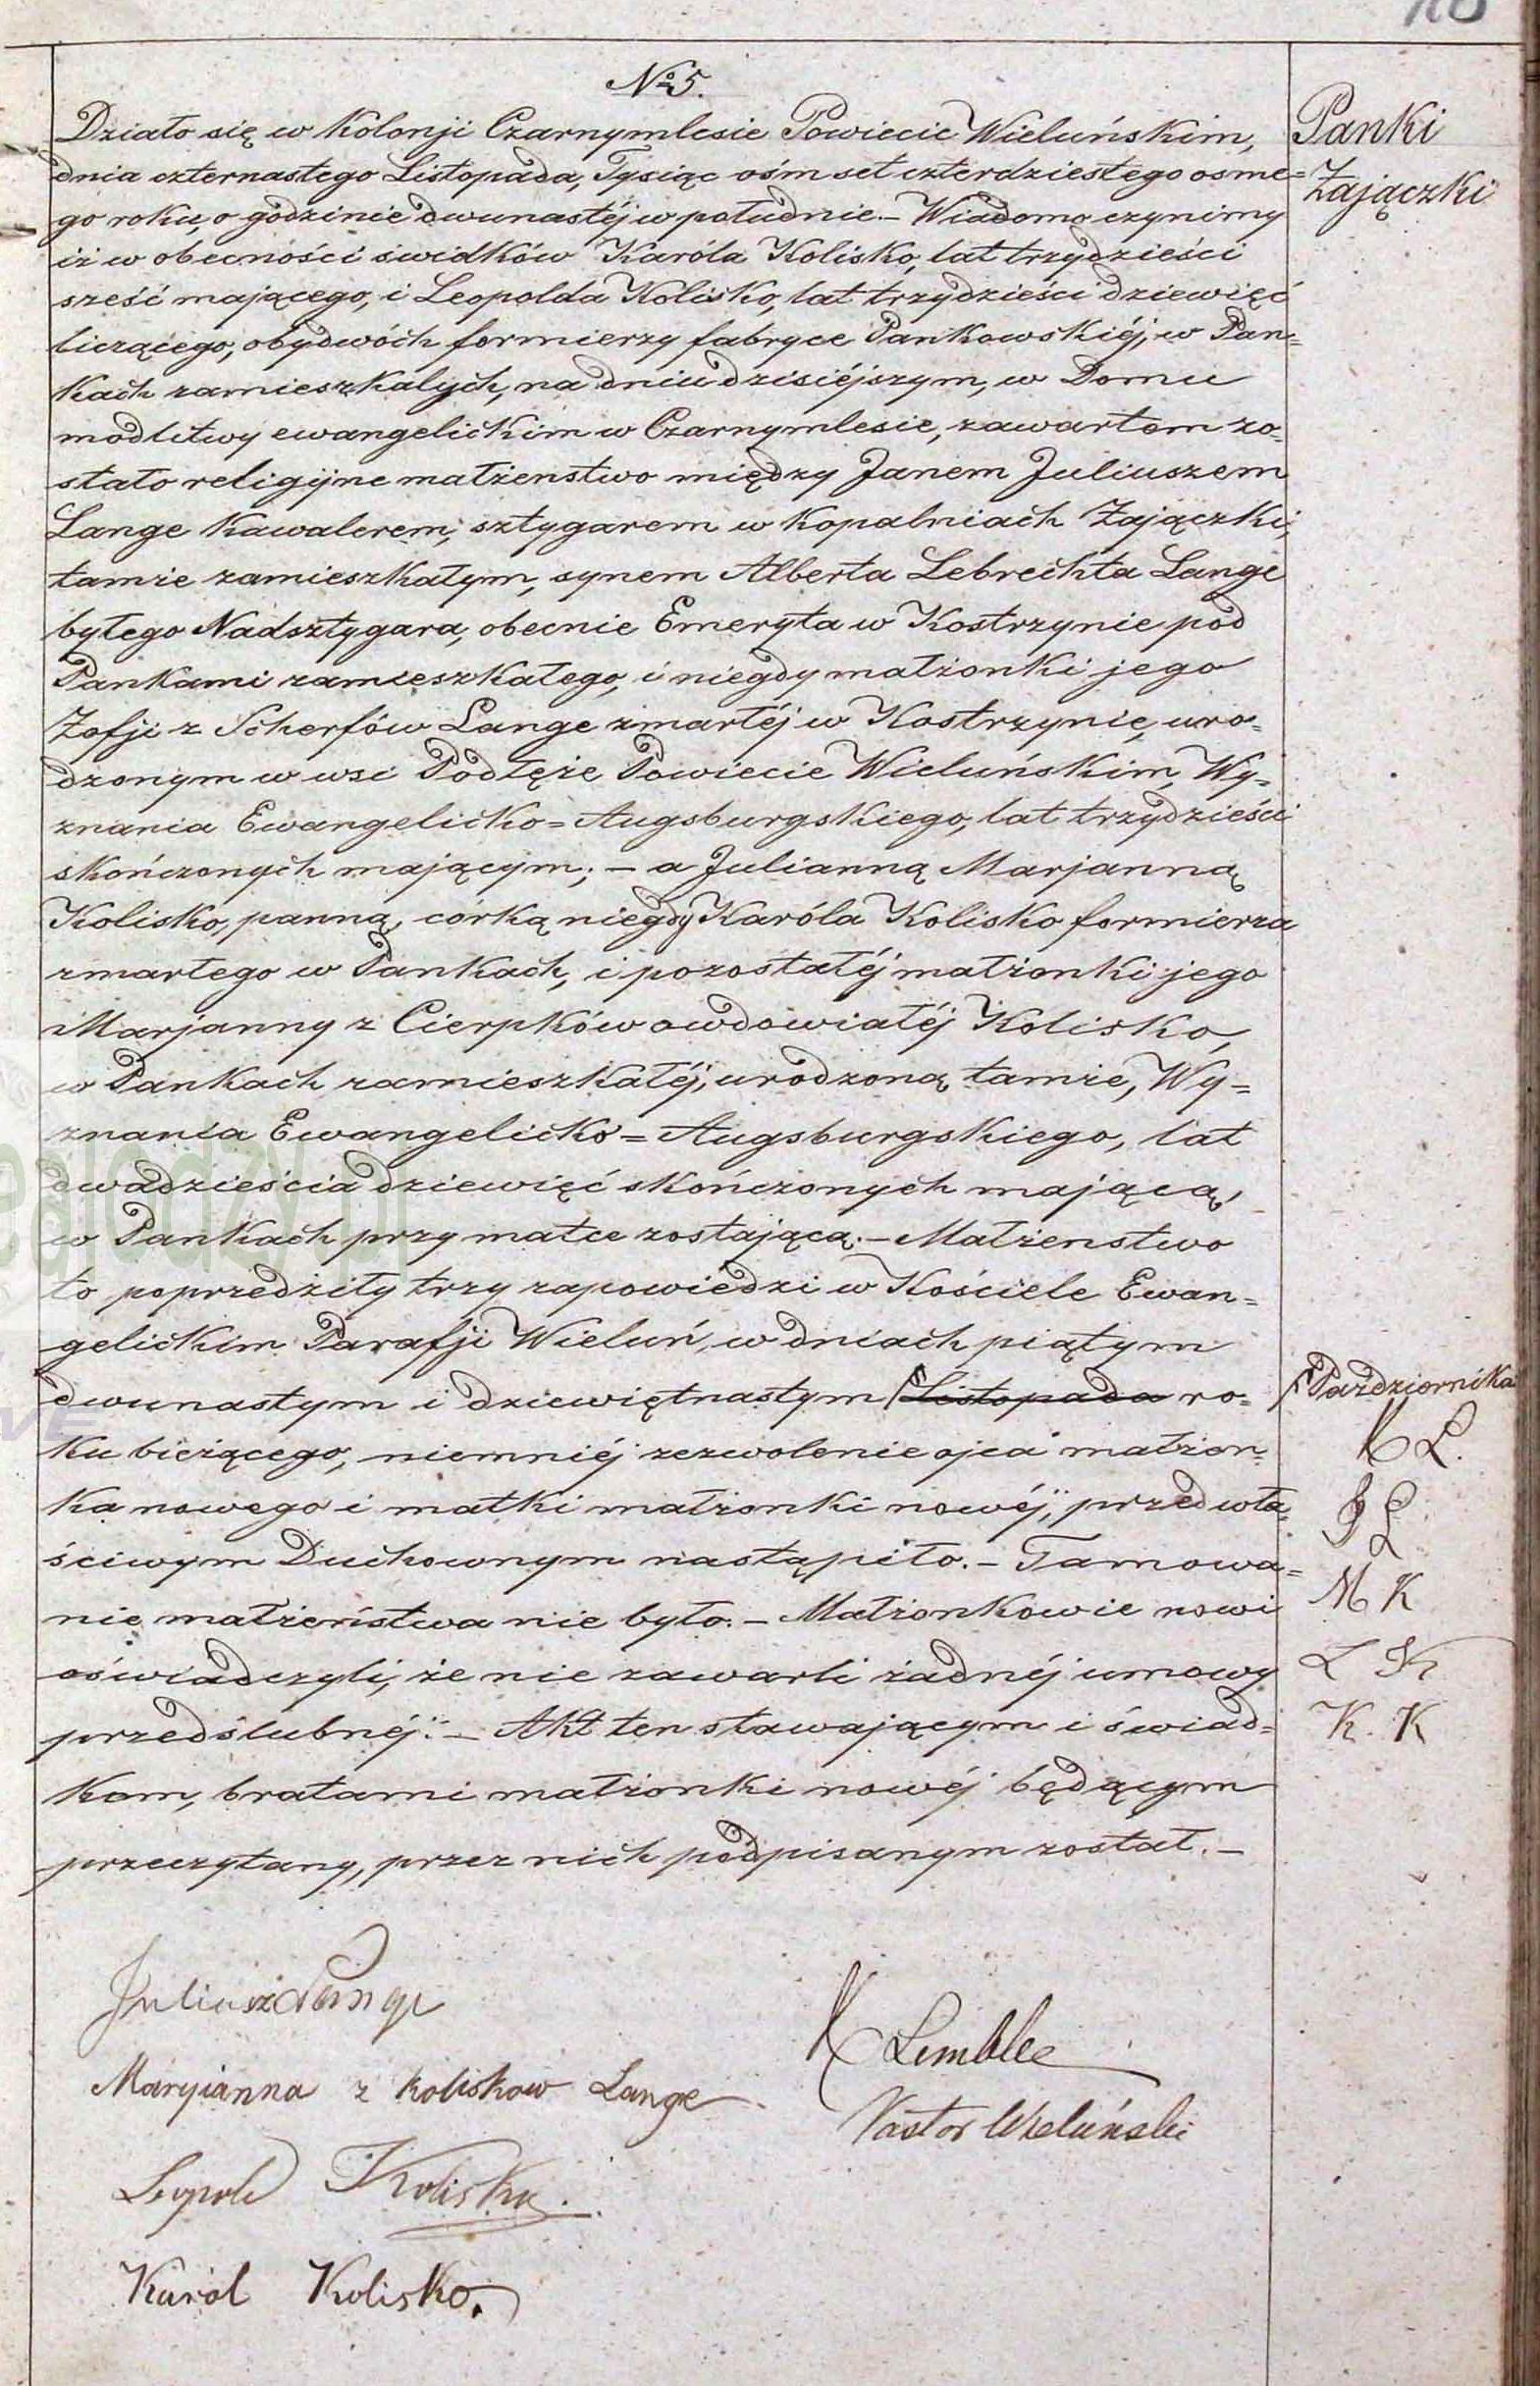 No 5.
Działo się w Kolonji Czarnymlesie Powiecie Wieluńskim,
dnia czternastego Listopada, Tysiąc ośm set czterdziestego osme=
go roku, o godzinie dwunastéj w południe. – Wiadomo czynimy
iż w obecności swidków Karóla Kolisko, lat trzydzieści
sześć mającego, i Leopolda Kolisko, lat trzydzieści dziewięć
liczącego, obydwóch formierzy fabryce Pankowskiéj, w Pan=
kach zamieszkalych, na dniu dzisiéjszym, w Domu
modlitwy ewangelickim w Czarnymlesie, zawartem zo=
stało religijne małżenstwo między Janem Juliuszem
Lange Kawalerem, sztygarem w kopalniach Zajączki,
tamże zamieszkałym, synem Alberta Lebrechta Lange
byłego Nadsztygara, obecnie Emeryta w Kostrzynie pod
Pankami zamieszkałego, i niegdy małżonki jego
Zofji z Scherfów Lange zmartéj w Kostrzynie, uro=
dzonym w wsi Podłęże Powiecie Wieluńskim, Wy=
znania Ewangelicko=Augsburgskiego, lat trzydzieści
skończonych mającym; – a Julianną Marjanną
Kolisko, panną, córką niegdy Karóla Kolisko formierza
zmarłego w Pankach, i pozostałéj małżonki jego
Marjanny z Cierpków owdowiałéj Kolisko,
w Pankach zamieszkałéj, urodzoną tamże, Wy=
znania Ewangelicko=Augsburgskiego, lat
dwadzieścia dziewięć skończonych mającą,
w Pankach przy matce zostającą. – Małżenstwo
to poprzedziły trzy zapowiedzi w Kościele Ewan=
gelickim Parafji Wieluń, w dniach piątym
dwunastym i dziewiętnastym Listopada ro=
ku bieżącego, niemniéj zezwolenie ojca małżon=
ka nowego i matki małżonki nowéj, przed wła=
ściwym Duchownym nastąpiło. – Tamowa=
nie małżeństwa nie było. – Małżonkowie nowi
oświadczyli, że nie zawarli żadnéj umowy
przedślubnéj. – Akt ten stawającym i świad=
kom, bratami małżonki nowéj będącym
przeczytany, przez nich podpisanym został. –
Juliusz Lange
Maryianna z Koliskow Lange
Leopold Kolisko.
Karol Kolisko.
K Lemblke
Pastor Wieluński
Panki
Zajączki
Pazdziernika
K L.
J L
M K
L K
K. K